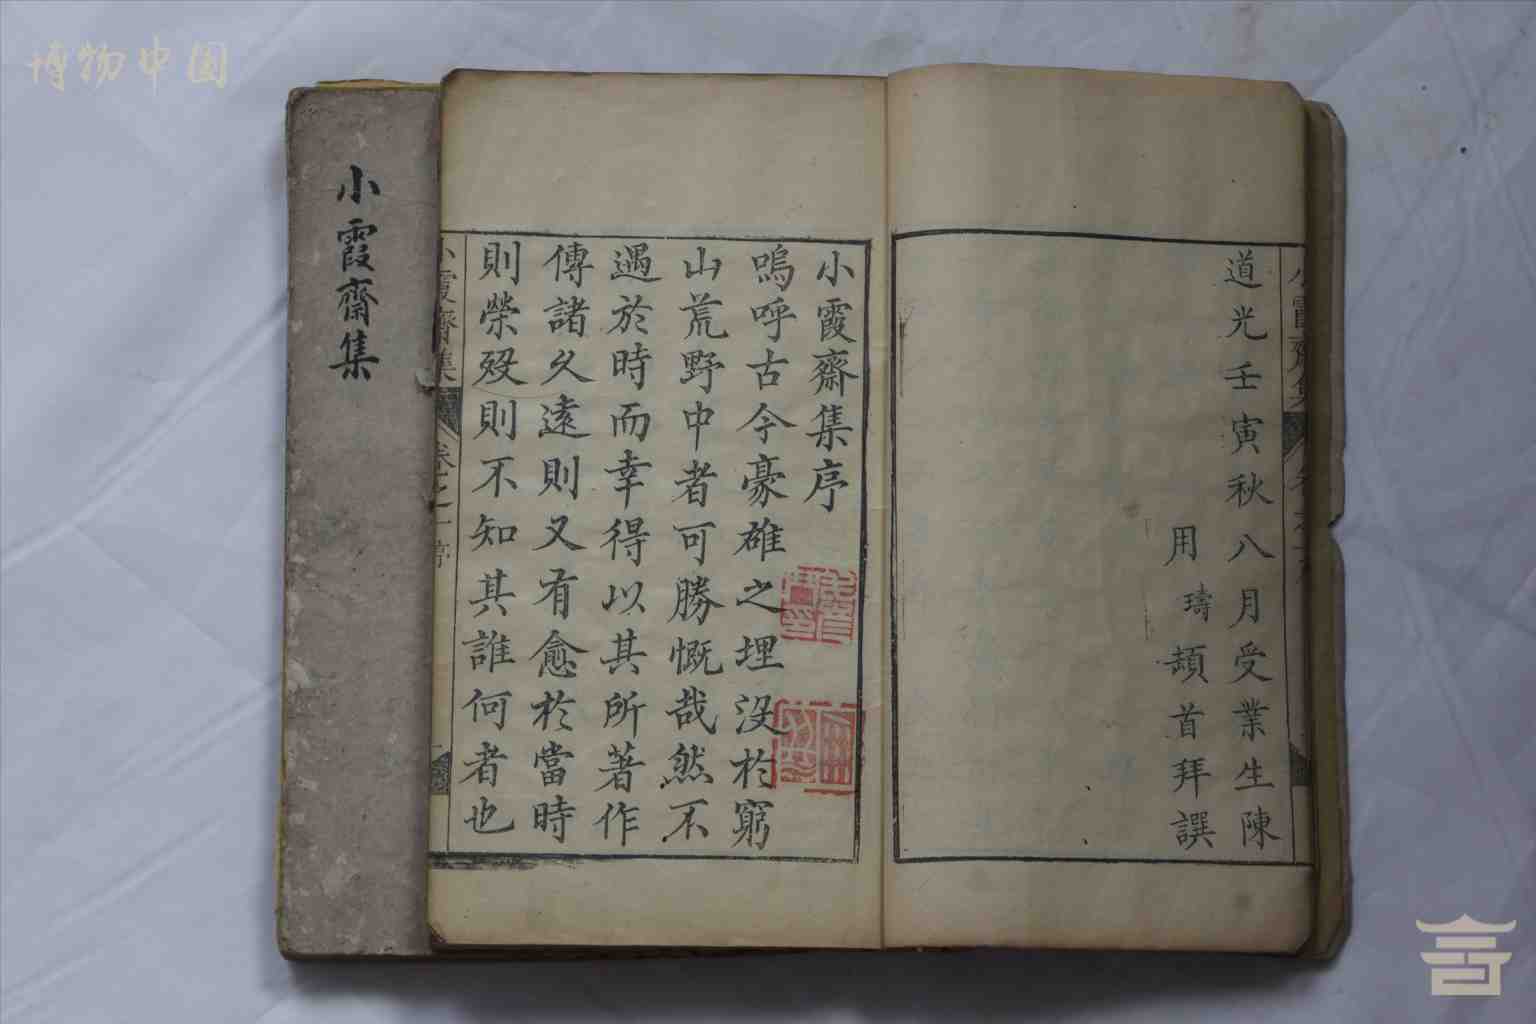 博物中国
小霞齋集
道光壬寅秋八月受業生陳
用 璹 頓首拜譔
小霞齋集序
嗚呼古今豪雄之埋没於窮
山荒野中者可勝慨哉然不
遇於時而幸得以其所著作
傳諸久遠則又有愈於當時
則榮歿則不知其誰何者也
小霞齋集
卷之一 序